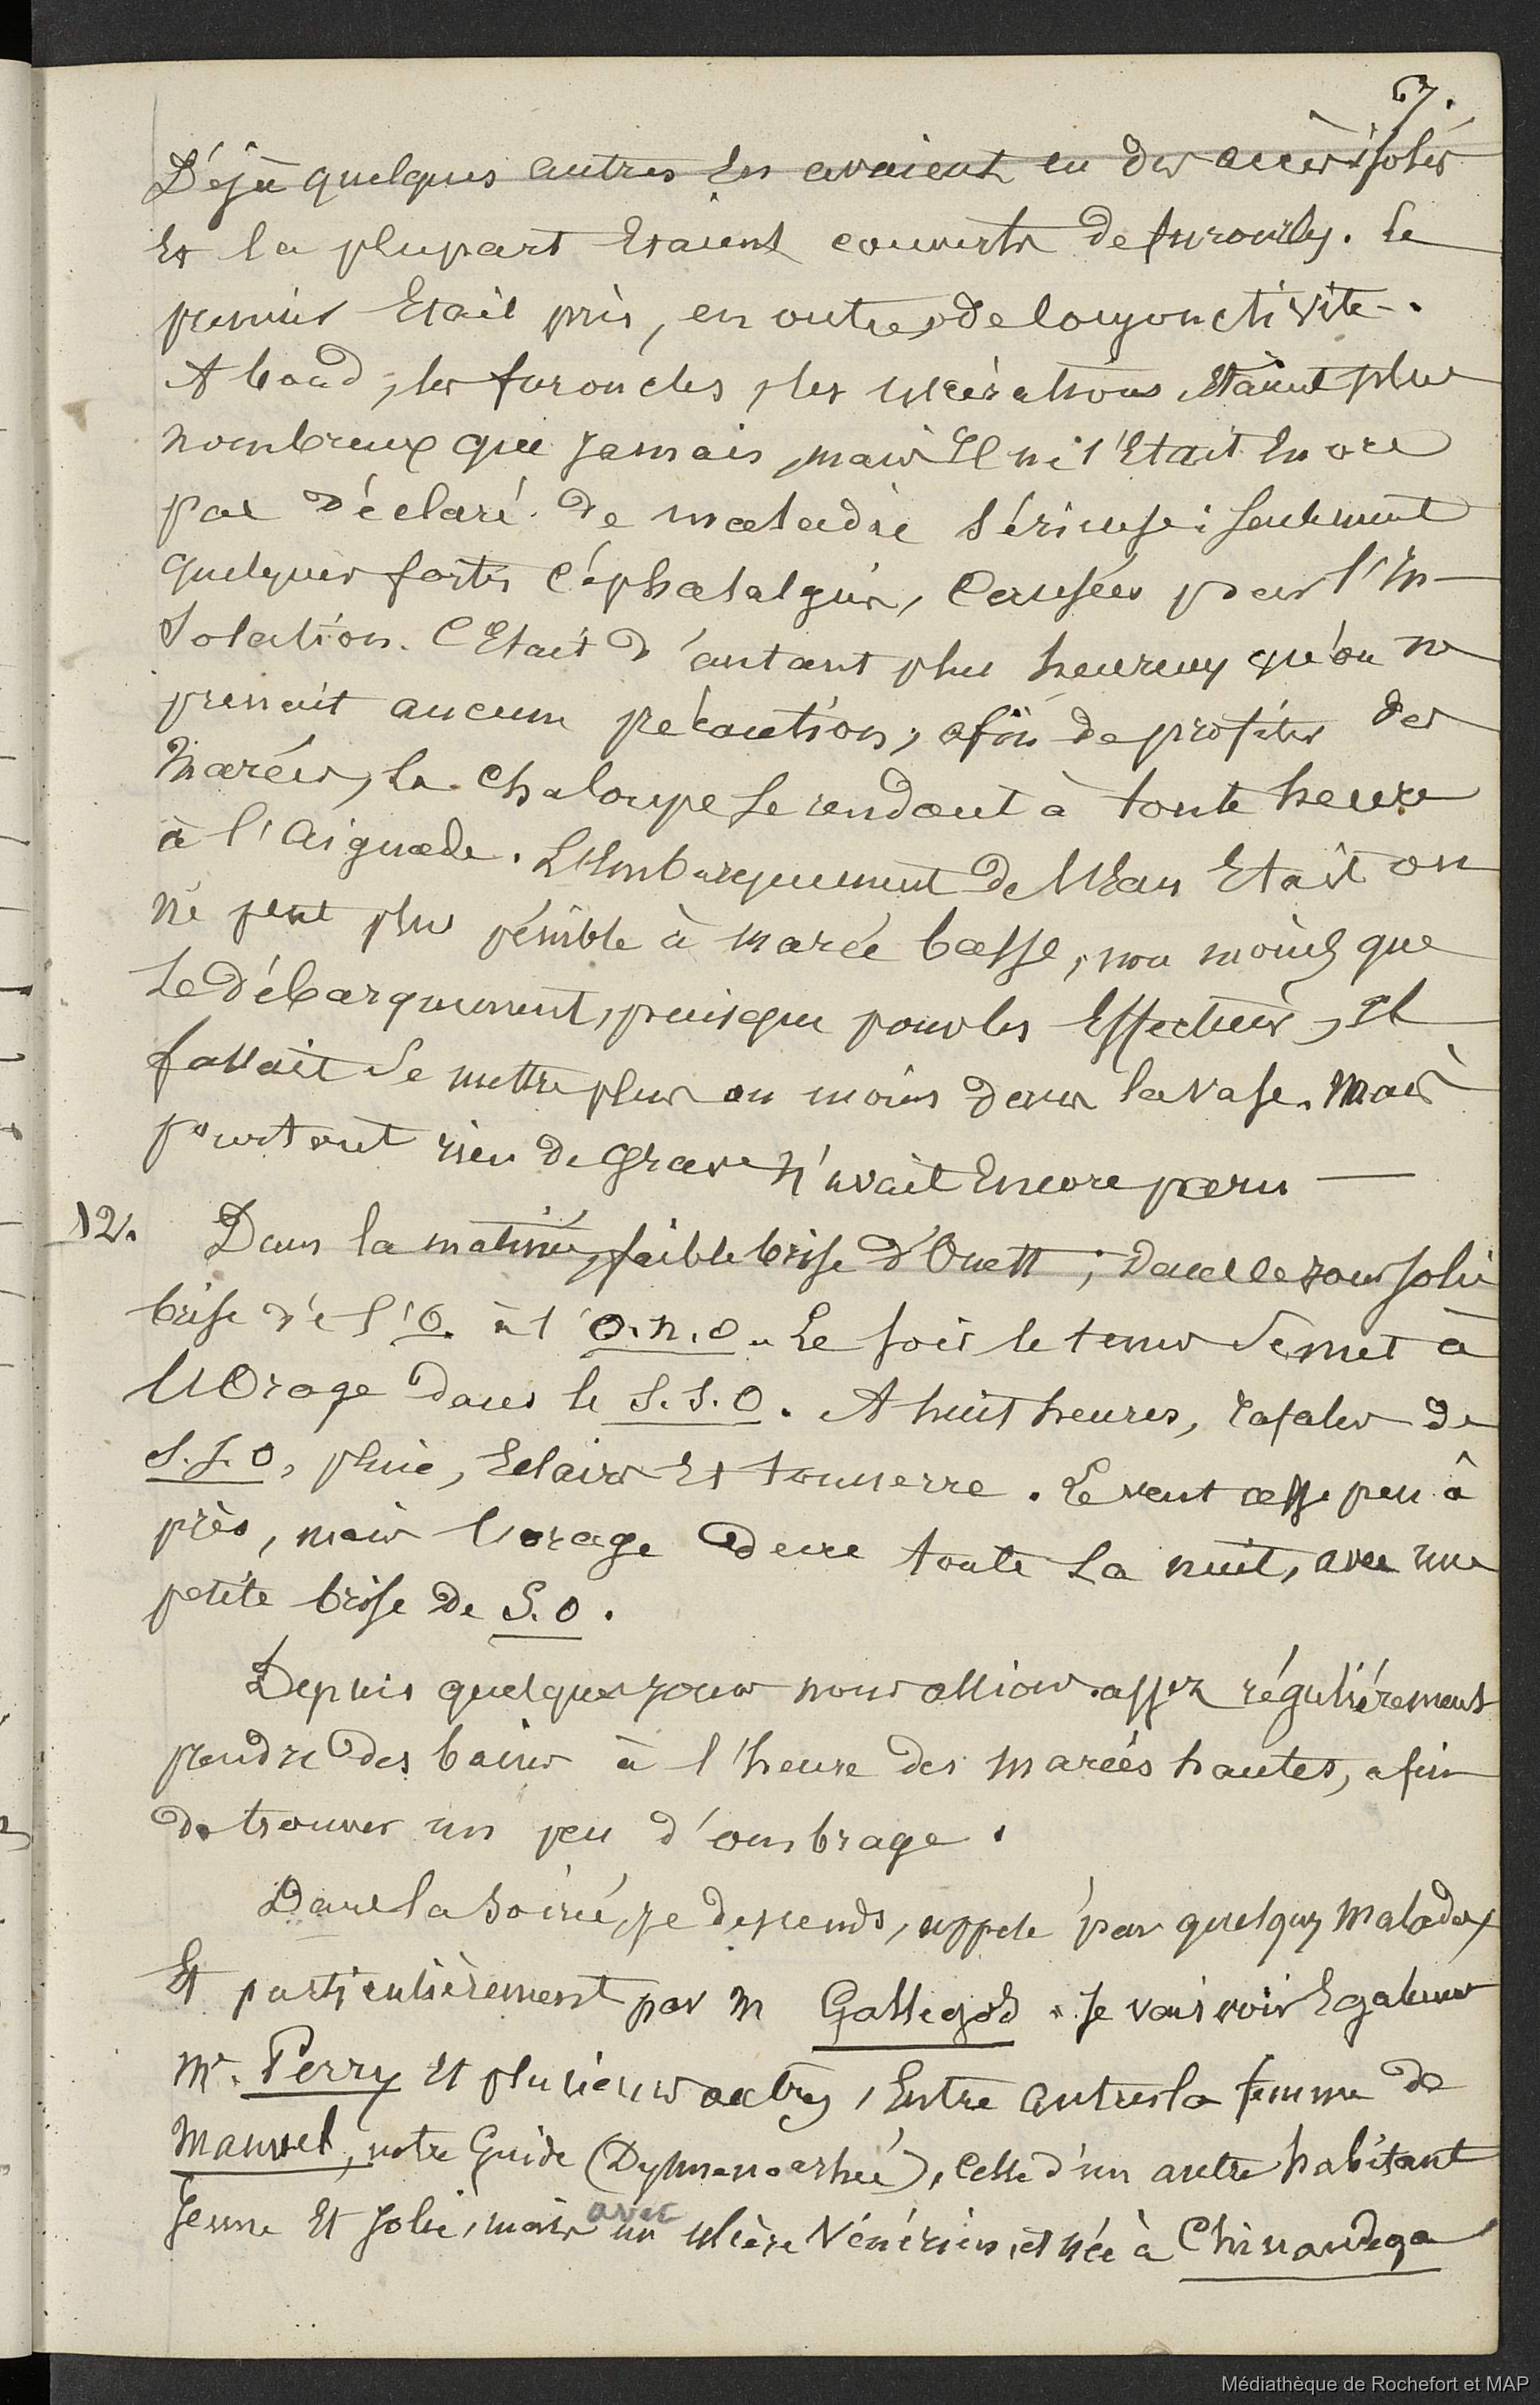 67.
Déjà quelques autres en avaient eu des accès isolés
et la plupart étaient couverts de furoncles. Le
premier était pris, en outre, de conjonctivite.
A bord, les furoncles, les ulcérations étaient plus
nombreux que jamais, mais il ne s'était encore
pas déclaré de maladie sérieuse ; seulement
quelques fortes céphalalgies, causées par l'in-
solation. C'était d'autant plus heureux qu'on ne
prenait aucune précaution, afin de profiter des
marées, la chaloupe se rendant à toute heure
à l'aiguade. L'embarquement de l'eau était on
ne peut plus pénible à marée basse, non moins que
le débarquement, puisque pour les effectuer, il
fallait se mettre plus ou moins dans la vase. Mais
pourtant rien de grave n'avait encore paru —
12. Dans la matinée, faible brise d'Ouest ; dans le jour jolie
brise de l'O. à l'O.N.O. Le soir le temps se met à
l'Orage dans le S.S.O. A huit heures, rafales de
S.S.O, pluie, éclairs et tonnerre. Le vent cesse peu à
près, mais l'orage dure toute la nuit, avec une
petite brise de S.O.
Depuis quelques jours nous allions assez régulièrement
prendre des bains à l'heure des marées hautes, afin
de trouver un peu d'ombrage.
Dans la soirée, je descends, appelé par quelques malades,
et particulièrement par M Gallegos. Je vais voir également
Mr. Perry et plusieurs autres, entre autres la femme de
Manuel, notre Guide (Dysménorrhée), celle d'un autre habitant
jeune et jolie, mais avec un ulcère Vénérien, et née à Chinandega
Médiathèque de Rochefort et MAP